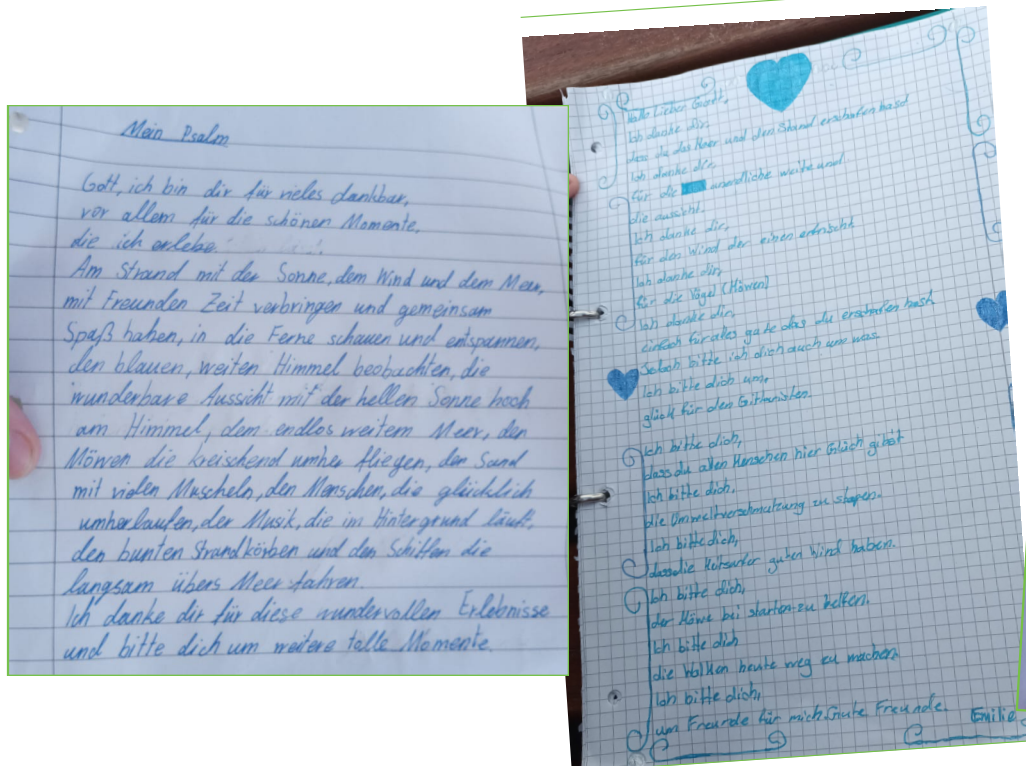 Mein Psalm
Gott, ich bin dir für vieles dankbar,
vor allem für die schönen Momente,
die ich erlebe.
Am Strand mit der Sonne, dem Wind und dem Meer,
mit Freunden Zeit verbringen und gemeinsam
Spaß haben, in die Ferne schauen und entspannen,
den blauen, weiten Himmel beobachten, die
wunderbare Aussicht mit der hellen Sonne hoch
am Himmel, dem endlos weitem Meer, den
Möwen die kreischend umher fliegen, der Sand
mit vielen Muscheln, den Menschen, die glücklich
umherlaufen, der Musik, die im Hintergrund läuft,
den bunten Strandkörben und den Schiffen die
langsam übers Meer fahren.
Ich danke dir für diese wundervollen Erlebnisse
und bitte dich um weitere tolle Momente.
Hallo Lieber Gott,
Ich danke dir,
dass du das Meer und den Strand erschafen hasd
Ich danke dir,
für die unendliche weite und
die aussicht.
Ich danke dir,
für den Wind der einen erfrischt
Ich danke dir,
für die Vögel (Möwen)
Ich danke dir,
einfach für alles gute das du erschafen hast
Jedoch bitte ich dich auch um was.
Ich bitte dich um,
glück für den Gittaristen.
Ich bitte dich,
dass du allen Menschen hier Glück gibst
Ich bitte dich,
die Umweltverschmutzung zu stopen.
Ich bitte dich,
dass die guten Wind haben.
Ich bitte dich,
der Möwe bei starten zu helfen.
Ich bitte dich
die Wolken heute weg zu machen.
Ich bitte dich,
um Freunde für mich. Gute Freunde.
Emilie